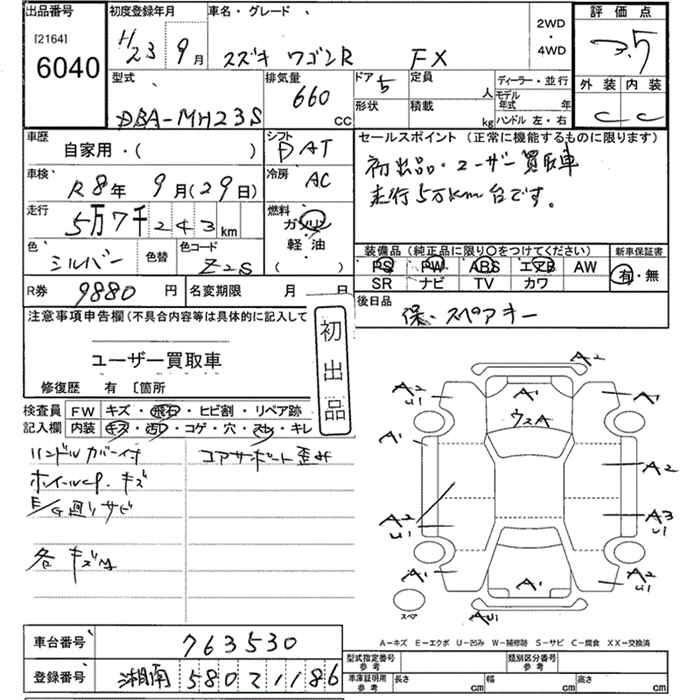 出品番号 初度登録年月 車名・グレード 2WD・4WD 評価点
[2164] 6040 H23 9月 スズキ ワゴンR FX 3.5
型式 排気量 ドア 定員 ディーラー・並行 外装 内装
DBA-MH23S 660 cc 5 人 モデル年式 年 C C
形状 積載 kg ハンドル 左・右
車歴 自家用・( ) シフト AT セールスポイント(正常に機能するものに限ります)
車検 R8年 9月(29日) 冷房 AC 初出品・ユーザー買取車
走行 5万7千243km 燃料 ガソリン 走行5万km台です。
色 シルバー 色替 色コード Z2S 軽油 ( )
装備品(純正品に限り○をつけてください) 新車保証書
PS PW ABS エアB AW 有・無
SR ナビ TV カワ
R券 9880円 名変期限 月 日 後日品
保・スペアキー
注意事項申告欄(不具合内容等は具体的に記入して
ユーザー買取車
初出品
修復歴 有 〔箇所
検査員 FW キズ・飛石・ヒビ割・リペア跡
記入欄 内装 キズ・汚レ・コゲ・穴・スレ・キレ
ハンドルカバー付 コアサポート歪ミ
ホイールcap.キズ
E/G廻りサビ
各キズ
A2
A2 U1 A1 A1
ウスA
A1
A2
A2 U1 A3 U1
A1 A1 A2 U1
スペア AU1
A-キズ E-エクボ U-凹み W-補修跡 S-サビ C-腐食 XX-交換済
車台番号 763530
型式指定番号 参考 類別区分番号 参考
登録番号 湘南 580 て 1186
車庫証明用 参考 長さ cm 幅 cm 高さ cm